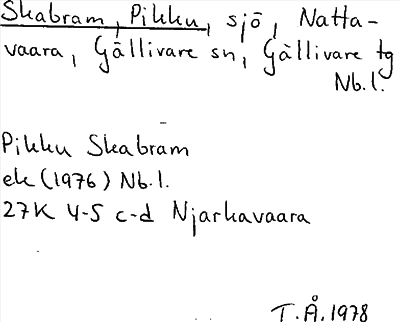 Skabram, Pikku, sjö, Natta-
vaara, Gällivare sn, Gällivare tg
Nb.l.
Pikku Skabram
ek (1976) Nb.l.
27K 4-5 c-d Njarkavaara
T.Å. 1978